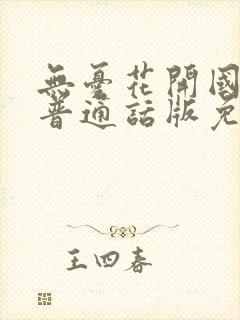 無憂花開國
普通話版免
王四春